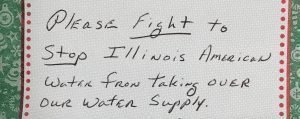 Please Fight to
Stop Illinois American
Water from taking over
our water supply.